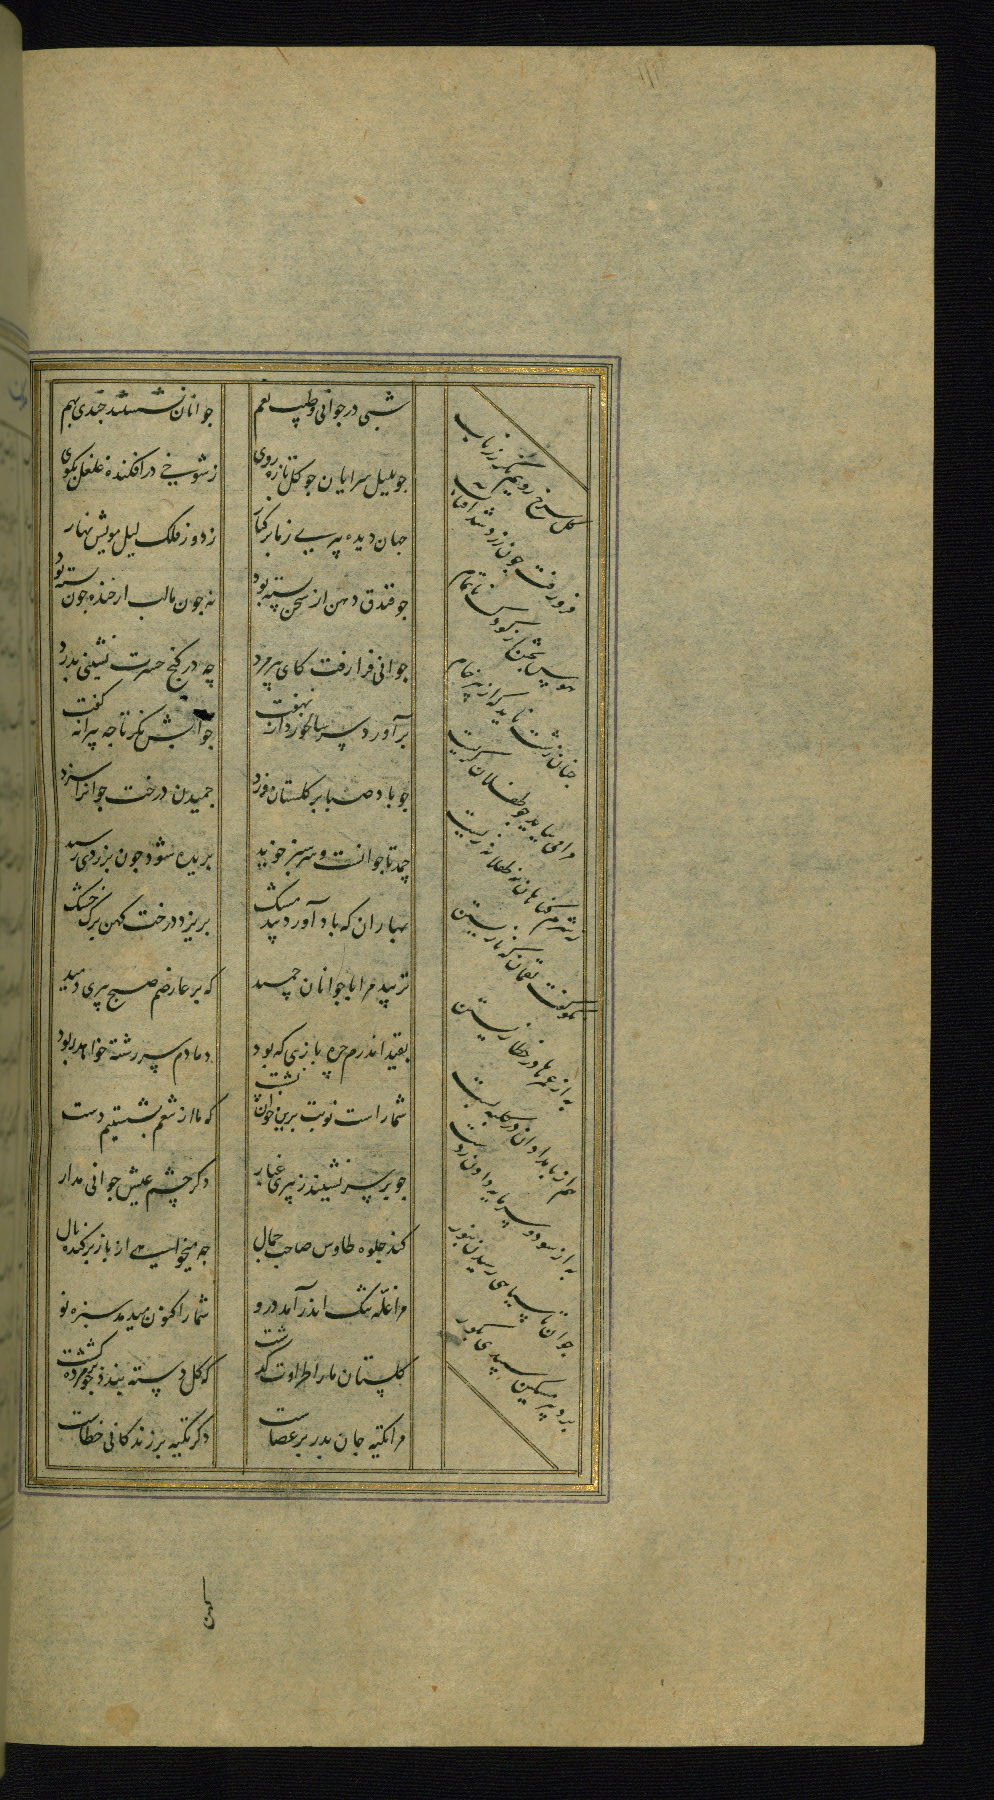 شبی در جوانی و طیب نعم
جوانان نشستند چندی بهم
جو بلبل سرایان جو کل تازه روی
ز شوخی در افکنده غلغل بکوی
جهان دیده پیری ز ما بر کنار
ز دور فلک لیل مویش نهار
جو فندق دهن از سخن بسته بود
نه جون ما لب از خنده جون پسته بود
جوانی فرا رفت کای پیرمرد
چه در کنج حسرت نشینی بدرد
برآورد سر سالخورد از نهفت
جوابش نکر تا جه پیرانه کفت
جو باد صبا بر کلستان وزد
جمیدن درخت جوانرا سزد
چمد تا جوانست و سرسبز خوید
بریده شود جون بزردی رسید
بهاران که باد آورد بید مشک
بریزد درخت کهن برک خشک
نزیبد مرا با جوانان چمید
که بر عارضم صبح پیری دمید
بقید اندرم جره بازی که بود
دمادم سر رشته خواهد ربود
شما راست نوبت برین خوان نشست
که ما از تنعم بشستیم دست
جو بر سر نشیند ز پیری غبار
دکر چشم عیش جوانی مدار
کند جلوه طاوس صاحب جمال
جه میخواهی از باز برکنده بال
مرا غله تنک اندر آمد درو
شما را کنون میدمد سبزه نو
کلستان ما را طراوت کذشت
که کل دسته بندد جو پژمرده کشت
مرا تکیه جان پدر بر عصاست
دکر تکیه بر زندکانی خطاست
کل سرخ رویم نکر زر ناب
فرو رفت جون زرد شد آفتاب
هوس پختن از کودک ناتمام
جنان زشت ناید که از پیر خام
مرا می بباید جو طفلان کریست
ز شرم کناهان نه طفلانه زیست
نکو کفت لقمان که نازیستن
به از عمرها در خطا زیستن
هم از بامدادان در کلبه بست
به از سود و سرمایه دادن ز دست
جوان تا سیاهی رسیدن بنور
برد پیر مسکین سپیدی بکور